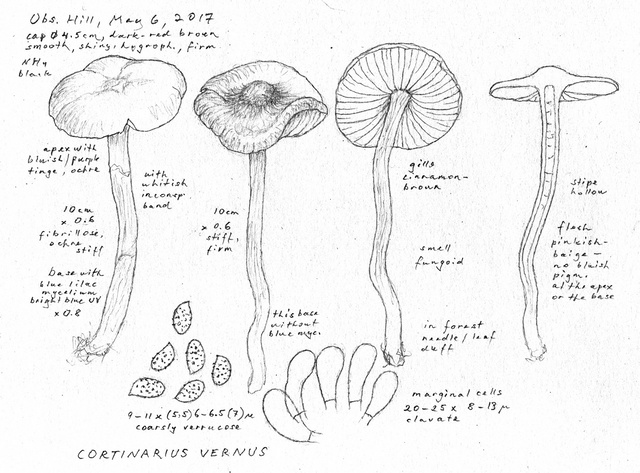 Obs. Hill, May 6, 2017
cap Ø 4.5cm, dark-red brown
smooth, shiny, hygroph., firm
NH4
black
apex with
bluish/purple
tinge, ochre
with
whitish
inconsp.
band
10cm
x 0.6
fibrillose,
ochre
stiff
base with
blue lilac
mycelium
bright blue UV
x 0.8
10cm
x 0.6
stiff,
firm
this base
without
blue myc.
gills
cinnamon-
brown
smell
fungoid
in forest
needle/leaf
duff
stipe
hollow
flesh
pinkish-
baige –
no bluish
pigm.
at the apex
or the base
9-11 x (5.5)6-6.5(7)µ
coarsly verrucose
marginal cells
20-25 x 8-13µ
clavate
CORTINARIUS VERNUS